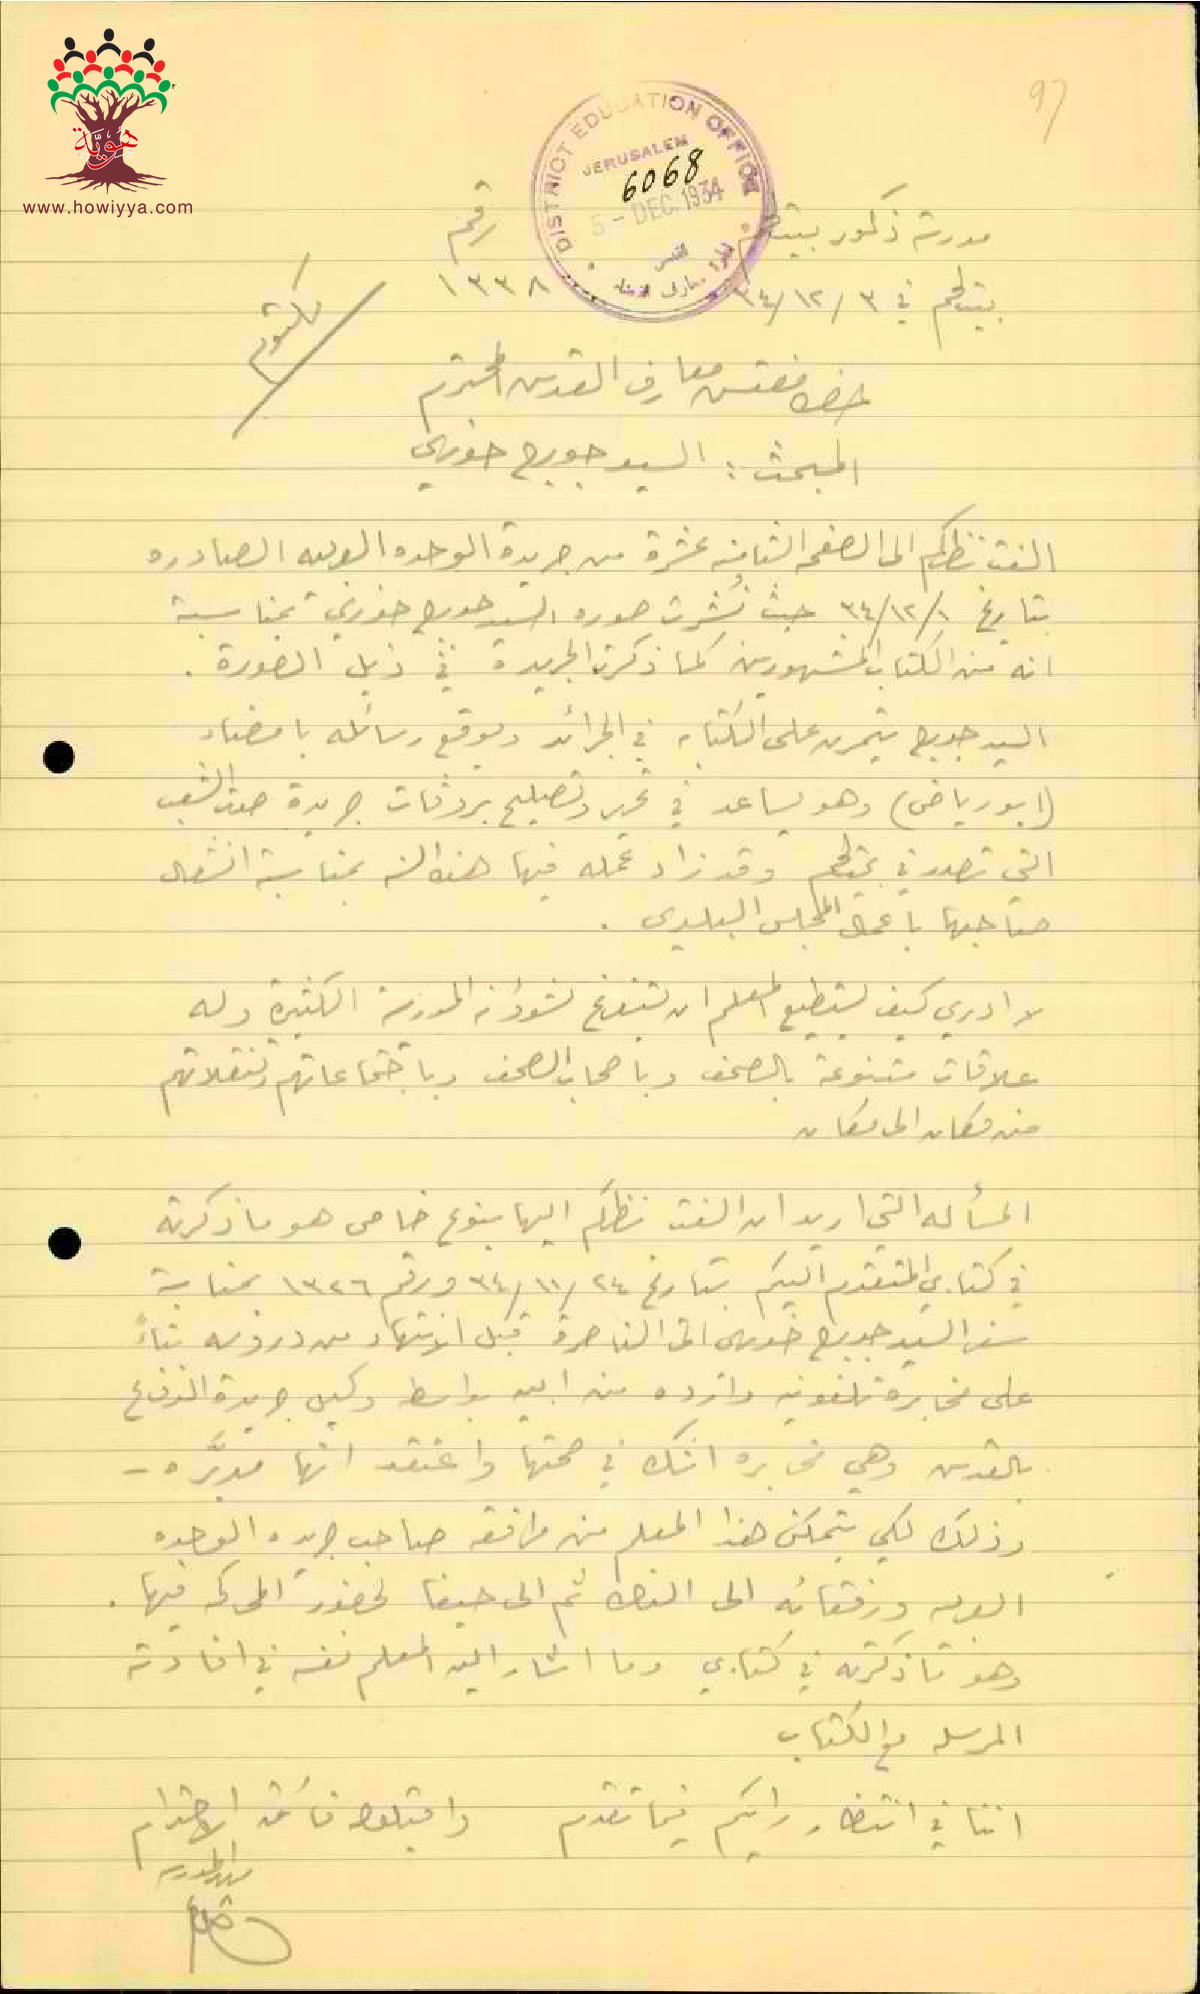 97
هويّة
www.howiyya.com
DISTRICT EDUCATION OFFICE
JERUSALEM
6068
5 - DEC. 1934
القدس
مدرسة ذكور بيت لحم
رقم
بيت لحم في ٣/١٢/٣٤
١٣٣٨
مكتوم
حضرة مفتش معارف القدس المحترم
المبحث : السيد جورج خوري
الفت نظركم الى الصفحه الثامنه عشرة من جريدة الوحده العربيه الصادره
بتاريخ ١/١٢/٣٤ حيث نُشرت صوره السيد جورج خوري بمناسبة
انه من الكتاب المشهورين كما ذكرت الجريدة في ذيل الصورة .
السيد جورج يتمرن على الكتابه في الجرائد ويوقع رسائله بامضاء
(ابو رياض) وهو يساعد في تحرير وتصليح بروفات جريدة صوت الشعب
التي تصدر في بيت لحم وقد زاد عمله فيها هذه السنه بمناسبة انشغال
صاحبها باعمال المجلس البلدي .
لا ادري كيف يستطيع المعلم ان يتفرغ لشؤون المدرسة الكثيرة وله
علاقات متنوعة بالصحف وباصحاب الصحف وباجتماعاتهم وتنقلاتهم
من مكان الى مكان
المسأله التي اريد ان الفت نظركم اليها بنوع خاص هو ما ذكرته
في كتابي المتقدم اليكم بتاريخ ٢٤/١١/٣٤ ورقم ١٣٢٦ بمناسبة
سفر السيد جورج خوري الى الناصرة قبل الانتهاء من دروسه بناءً
على مخابرة تلفونيه وارده من ابيه بواسطه وكيل جريدة الدفاع
بالقدس وهي مخابره اشك في صحتها واعتقد انها مدبَّره –
وذلك لكي يتمكن هذا المعلم من مرافقه صاحب جريده الوحده
العربيه ورفقائه الى الناصرة ثم الى حيفا لحضور الحركه فيها .
وهو ما ذكرته في كتابي وما اشار اليه المعلم نفسه في افادته
المرسله مع الكتاب
اننا في انتظار رايكم فيما تقدم واقبلوا فائق الاحترام
مدير المدرسه